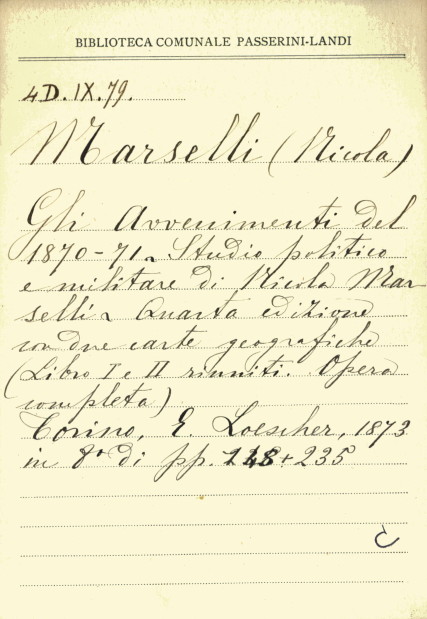 BIBLIOTECA COMUNALE PASSERINI-LANDI
4D.IX.79.
Marselli (Nicola)
Gli Avvenimenti del
1870-71. Studio politico
e militare di Nicola Mar-
selli. Quarta edizione
con due carte geografiche
(Libro I e II riuniti. Opera
completa)
Torino, E. Loescher, 1873
in 8° di pp. 148+235